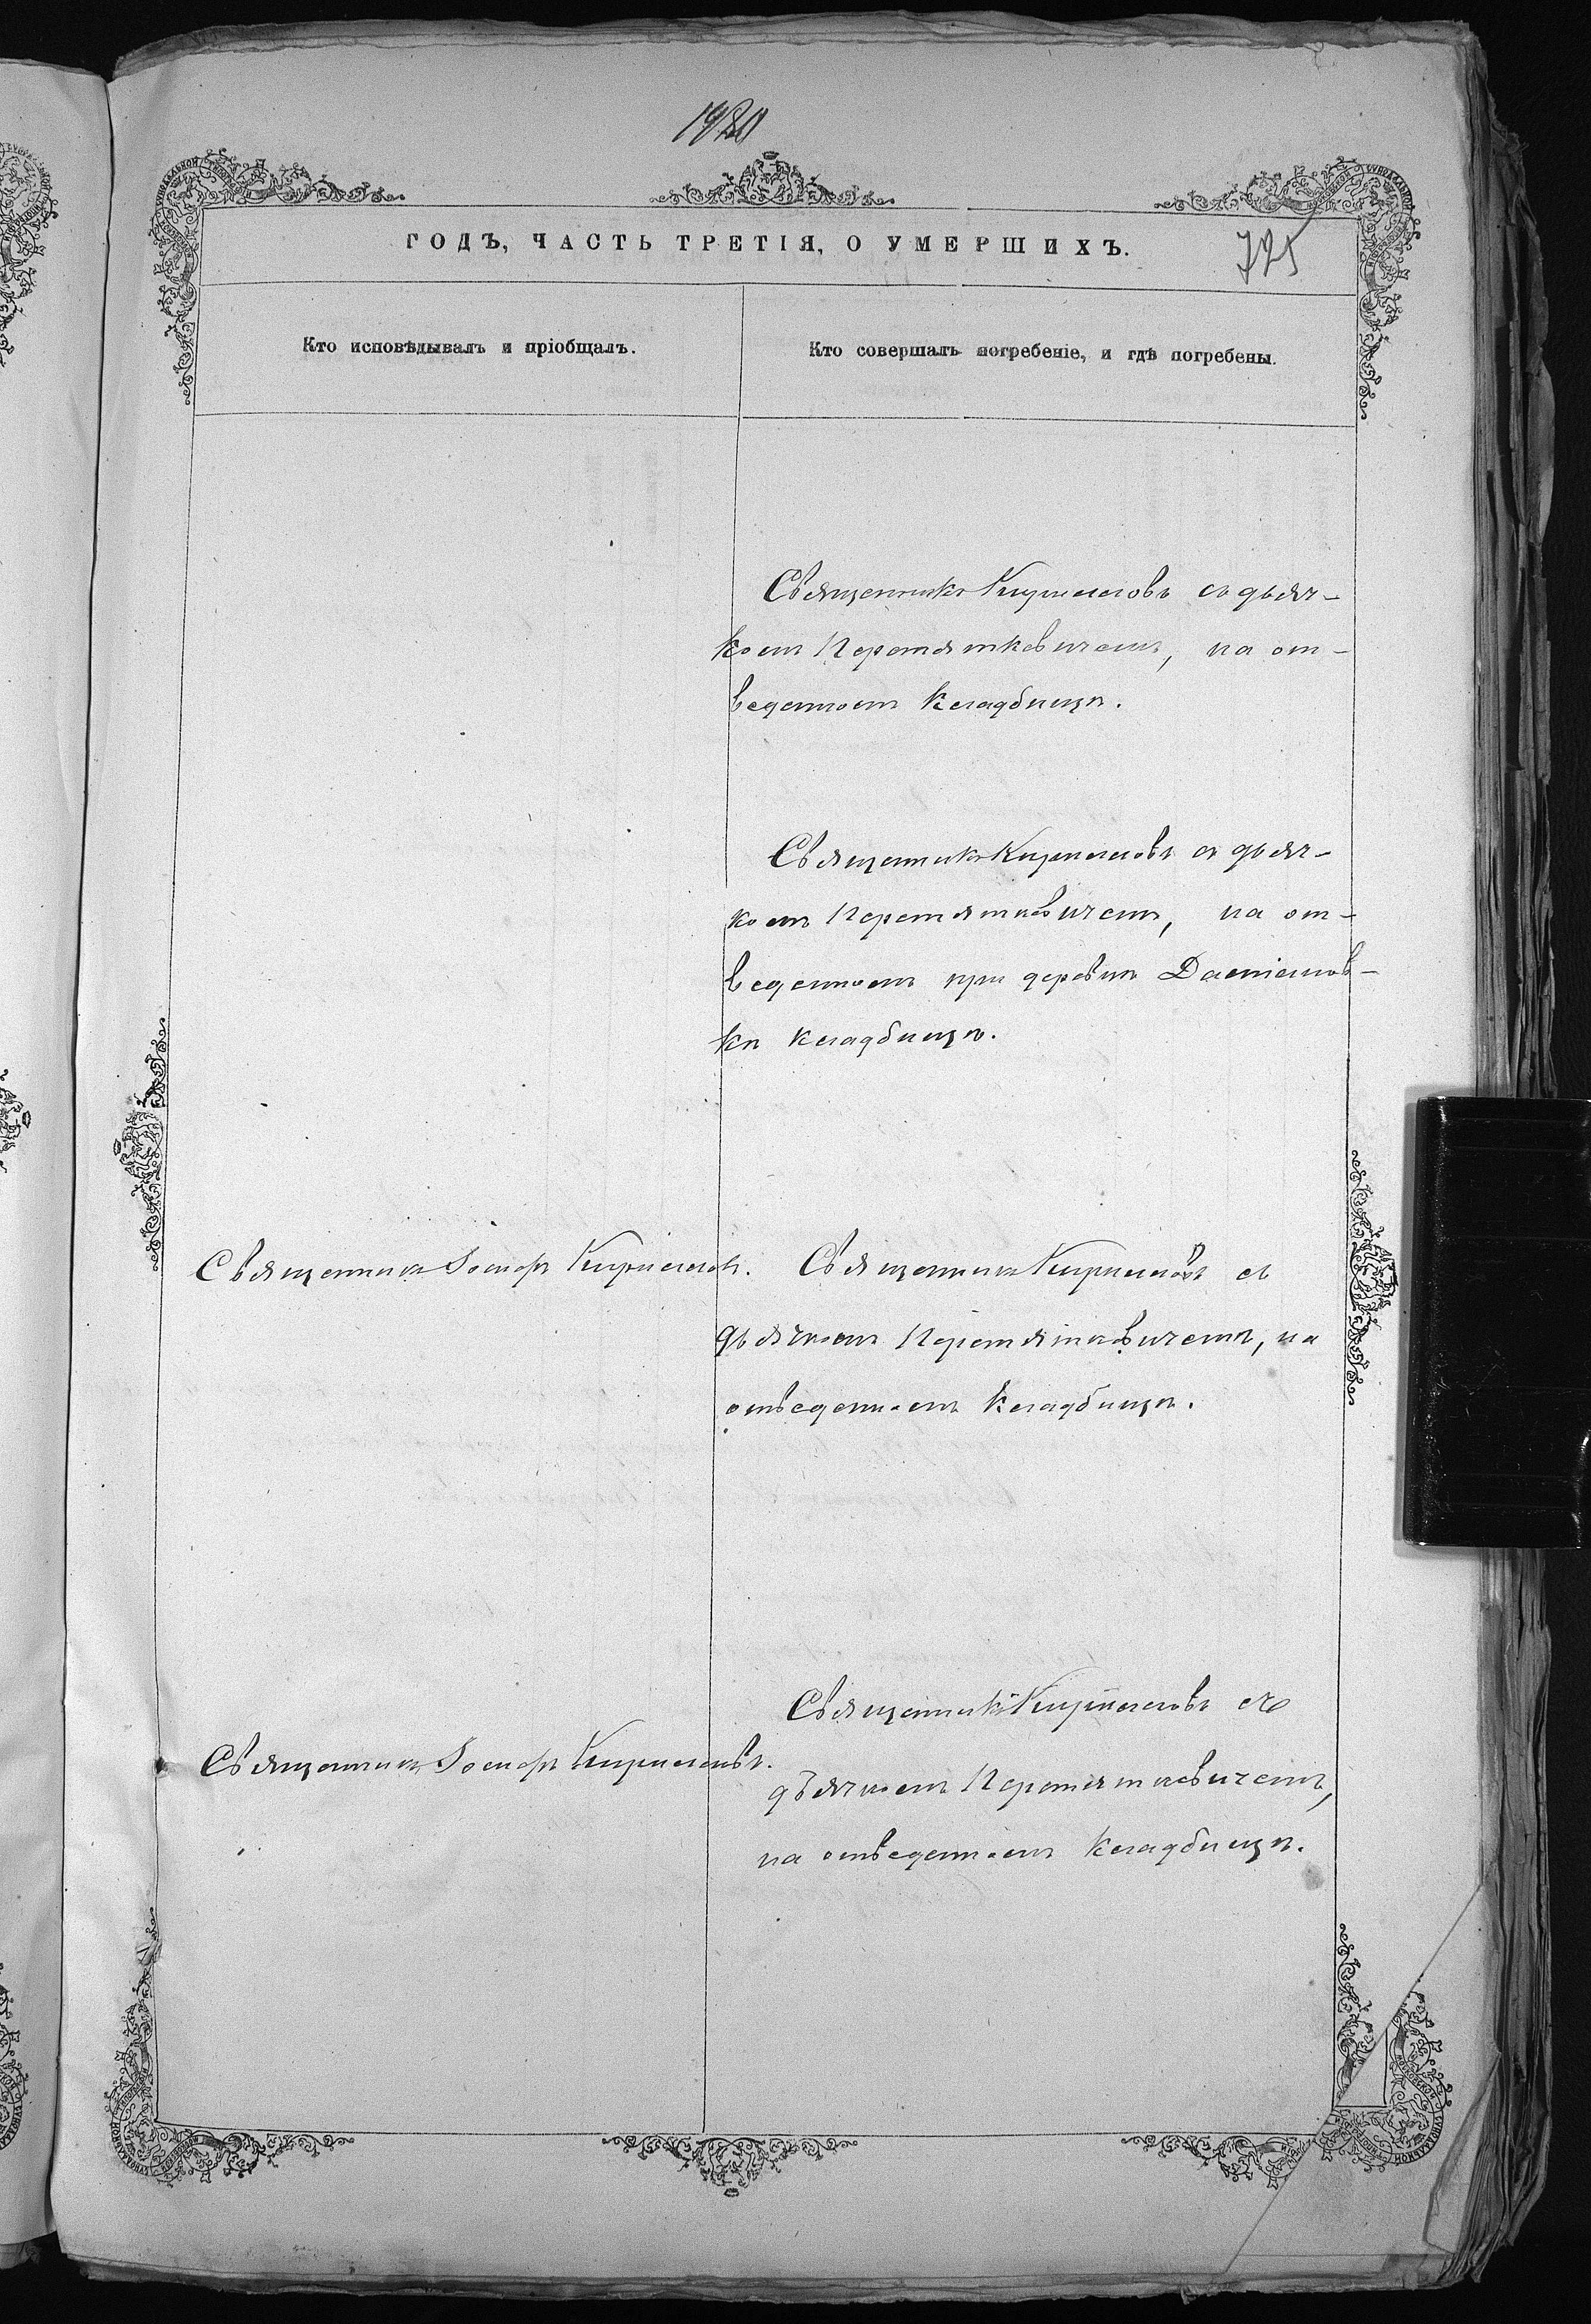 ГОДЪ, ЧАСТЬ ТРЕТІЯ, О УМЕРШИХЪ.
725
Кто исповѣдывалъ и пріобщалъ.
Кто совершалъ погребеніе, и гдѣ погребены.
Священникъ Кирилловъ съ дьяч-
комъ Перетятковичемъ, на от-
веденномъ кладбищѣ.
Священникъ Кирилловъ съ дьяч-
комъ Перетятковичемъ, на от-
веденномъ при деревнѣ
кѣ кладбищѣ.
Священникъ Кирилловъ.
Священникъ Кирилловъ съ
дьячкомъ Перетятковичемъ, на
отведенномъ кладбищѣ.
Священникъ Кирилловъ.
Священникъ Кирилловъ съ
дьячкомъ Перетятковичемъ,
на отведенномъ кладбищѣ.